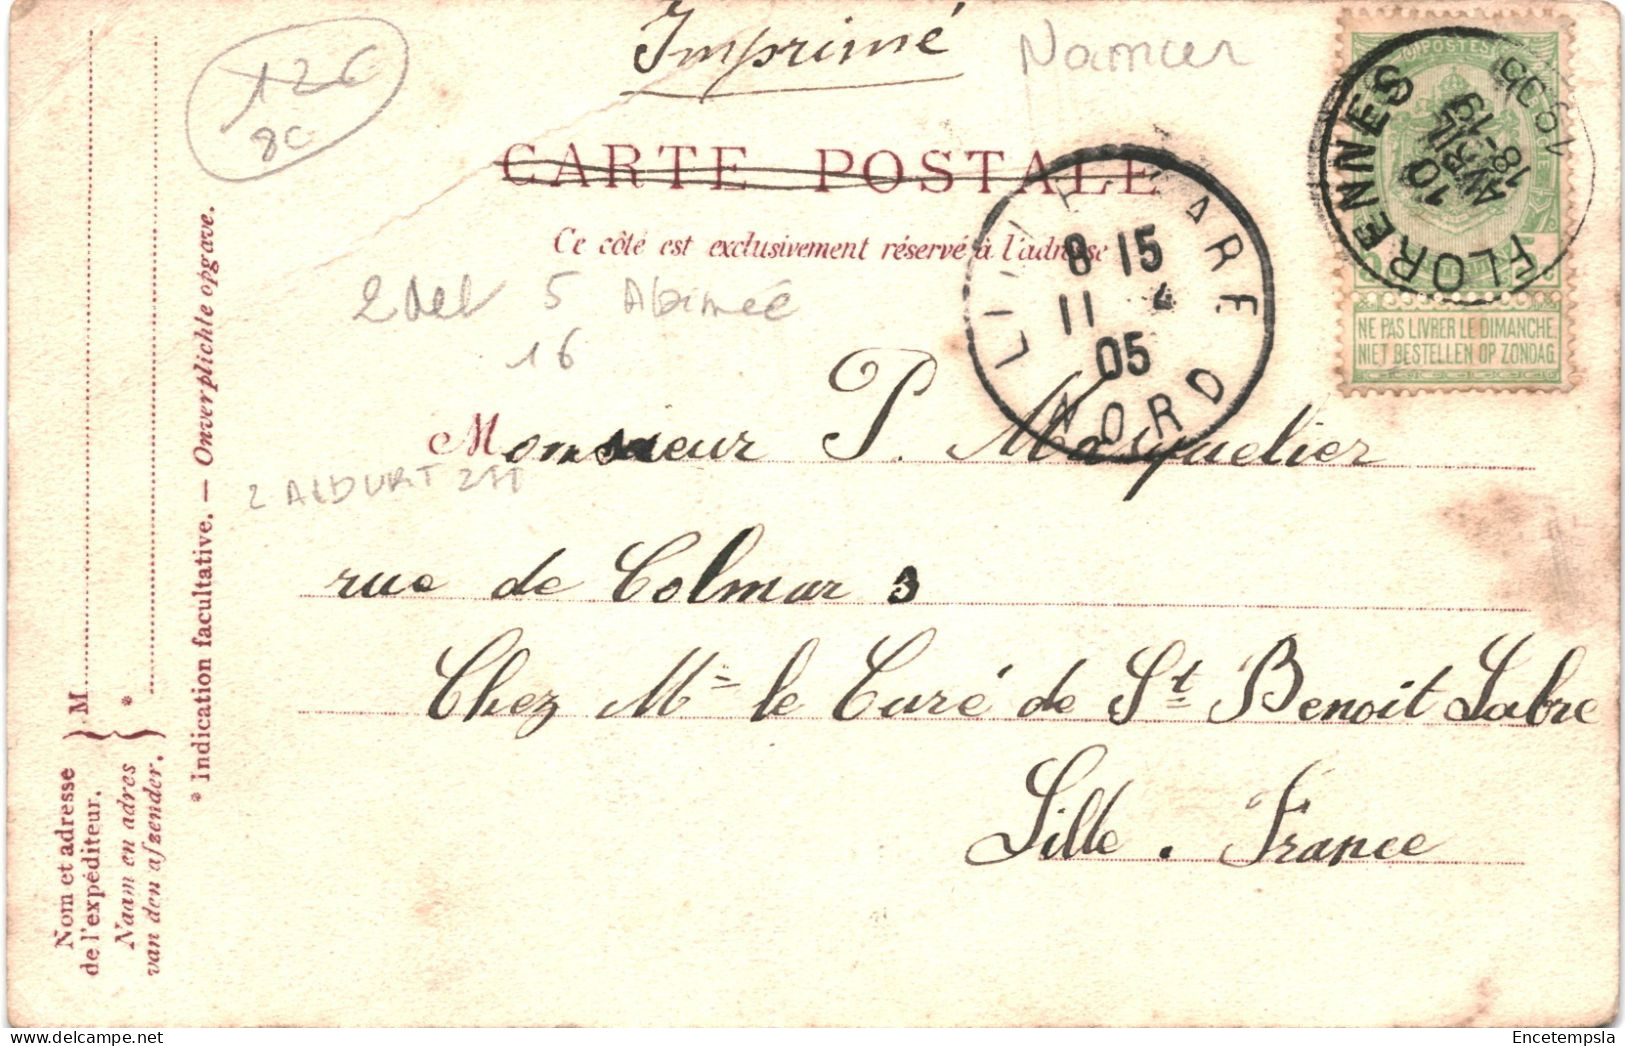 Imprimé
Namur
12€
8c
CARTE POSTALE
Ce côté est exclusivement réservé à l'adresse
5 Abimée
16
POSTES
NE PAS LIVRER LE DIMANCHE
NIET BESTELLEN OP ZONDAG
FLORENNES
10
AVRIL
18-19
1905
GARE
8 15
11 4
05
NORD
Monsieur P. Masquelier
rue de Colmar 3
Chez Mr le Curé de St Benoit Labre
Lille . France
* Indication facultative. — Onverplichte opgave.
M
*
Nom et adresse
de l'expéditeur.
Naam en adres
van den afzender.
Encetempsla